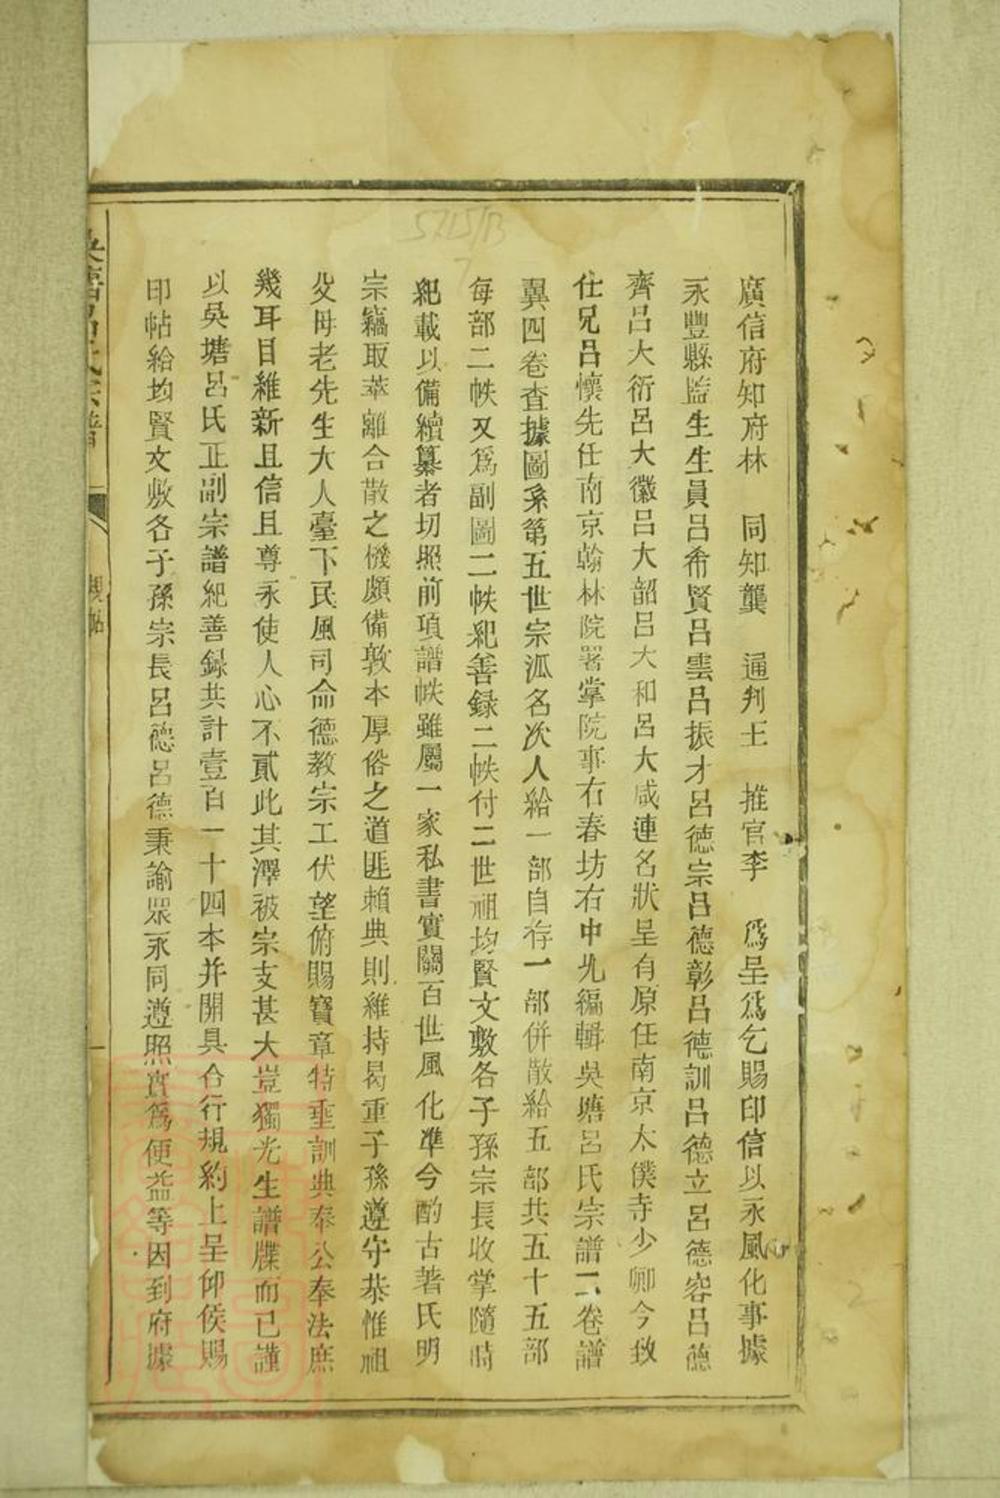 廣信府知府林　同知龔　通判王　推官李　為呈為乞賜印信以永風化事據
永豐縣監生生員呂希賢呂雲呂振才呂德宗呂德彰呂德訓呂德立呂德容呂德
齊呂大衍呂大徽呂大韶呂大和呂大咸連名狀呈有原任南京太僕寺少卿今致
仕兄呂懷先任南京翰林院署掌院事右春坊右中允編輯吳塘呂氏宗譜二卷譜
翼四卷查據圖系第五世宗派名次人給一部自存一部併散給五部共五十五部
每部二帙又為副圖二帙紀善録二帙付二世祖均賢文敷各子孫宗長收掌隨時
紀載以備續纂者切照前項譜帙雖屬一家私書實關百世風化準今酌古著氏明
宗竊取萃離合散之機頗備敦本厚俗之道匪賴典則維持曷重子孫遵守恭惟祖
父母老先生大人臺下民風司命德教宗工伏望俯賜寶章特垂訓典奉公奉法庶
幾耳目維新且信且尊永使人心不貳此其澤被宗支甚大豈獨光生譜牒而已謹
以吳塘呂氏正副宗譜紀善録共計壹百一十四本并開具合行規約上呈仰侯賜
印帖給均賢文敷各子孫宗長呂德呂德秉諭眾永同遵照實為便益等因到府據
呂氏宗譜
規帖
一
5215/B
7